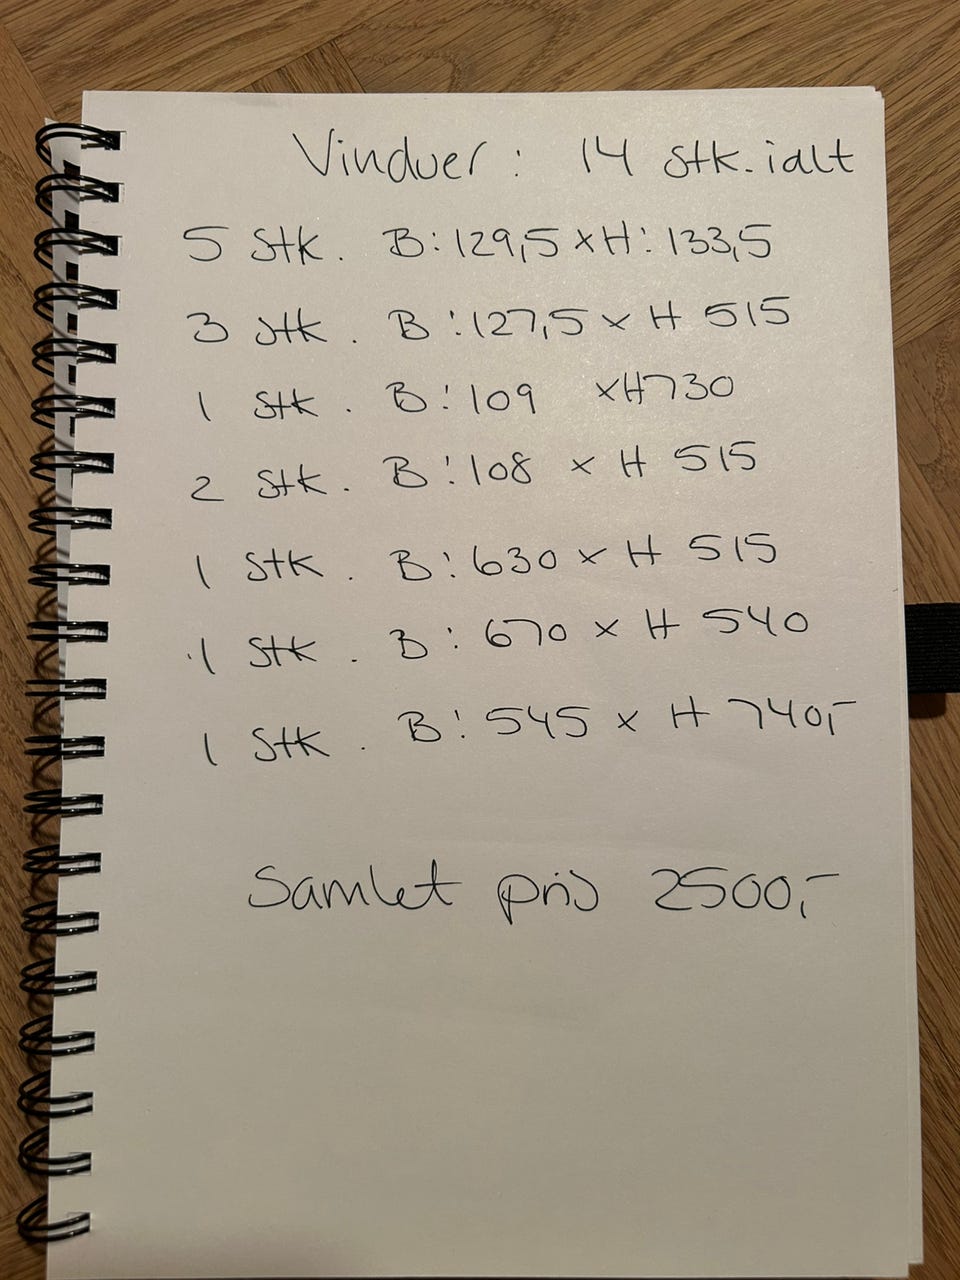 Vinduer : 14 stk. ialt
5 Stk. B: 129,5 x H: 133,5
3 Stk. B: 127,5 x H 515
1 Stk. B: 109 x H 730
2 Stk. B: 108 x H 515
1 Stk. B: 630 x H 515
1 Stk. B: 670 x H 540
1 Stk. B: 545 x H 740,-
Samlet pris 2500,-